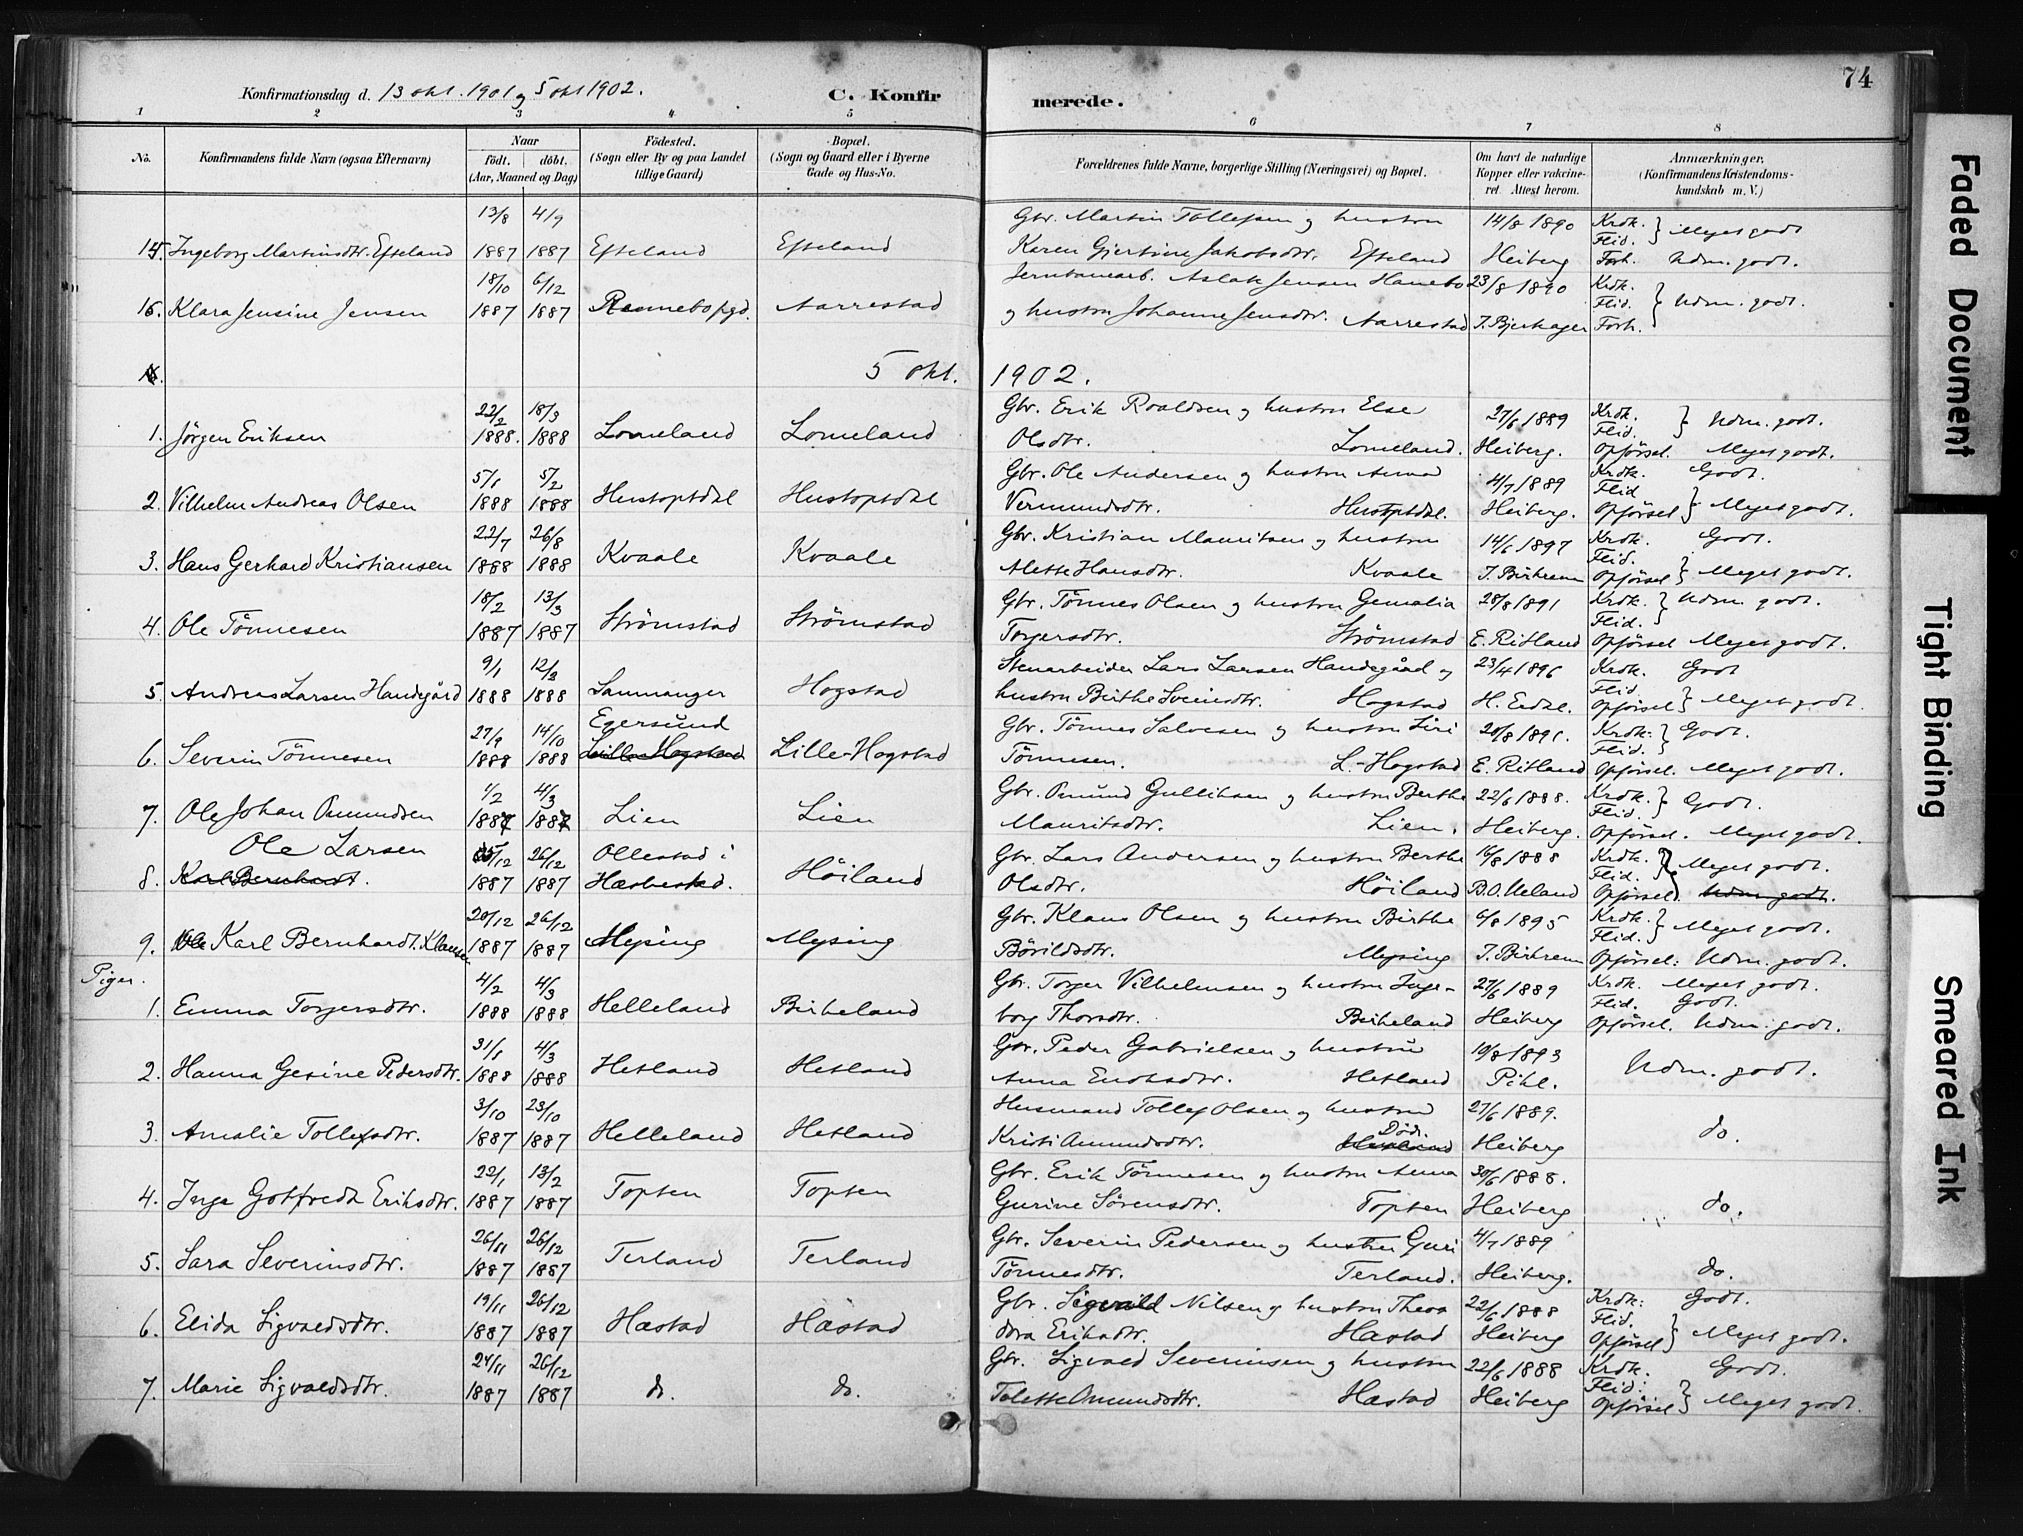 74
Konfirmationsdag d. 13 okt. 1901 og 5 okt 1902.
C. Konfir
merede.
1 2 3 4 5 6 7 8
No. Konfirmandens fulde Navn (ogsaa Efternavn) Naar födt. döbt. (Aar, Maaned og Dag) Födested. (Sogn eller By og paa Landet tillige Gaard) Bopæl. (Sogn og Gaard eller i Byerne Gade og Hus-No. Forældrenes fulde Navne, borgerlige Stilling (Næringsvei) og Bopæl. Om havt de naturlige Kopper eller vakcineret. Attest herom. Anmærkninger. (Konfirmandens Kristendomskundskab m. V.)
13/8 4/9 Gbr. Martin Tollefsen og hustru 14/8 1890 Krdk. Flid. } Meget godt
15. Ingeborg Martinsdtr. Efteland 1887 1887 Efteland Efteland Karen Gjertine Jakobsdtr. Efteland Heiberg Forh. Udm. godt.
18/10 6/12 Jernbanearb. Aslak Jensen Hanebo 23/8 1890 Krdk. Flid.
16. Klara Jensine Jensen 1887 1887 Rennebo pgd. Aarrestad og hustru Johanne Jensdtr. Aarrestad J. Bjerkager Forh. } Udm. godt.
5 okt. 1902.
22/2 18/3 Gbr. Erik Roaldsen og hustru Else 27/6 1889 Krdk. Flid. } Udm. godt.
1. Jörgen Eriksen 1888. 1888 Lomeland Lomeland Olsdtr. Lomeland. Heiberg. Opförsel. Meget godt.
5/1 5/2 Gbr. Ole Andersen og hustru Anna 4/7 1889 Krdk. Godt.
2. Vilhelm Andreas Olsen 1888 1888 Hustoptdal Hustoptdal Vermundsdtr. Hustoptdal. Heiberg. Flid Opförsel } Meget godt.
22/7 26/8 Gbr. Kristian Mauritsen og hustru 14/6 1897 Krdk. Godt.
3. Hans Gerhard Kristiansen 1888 1888 Kvaale Kvaale Alette Hansdtr. Kvaale J. Birkrem Flid. Opförsel } Meget godt.
18/2 13/3 Gbr. Tönnes Olsen og hustru Gemalia 28/8 1891 Krdk. Flid. } Udm. godt.
4. Ole Tönnesen 1887 1887 Strömstad Strömstad Torgersdtr. Strömstad E. Ritland Opförsel Meget godt.
9/1 12/3 Stenarbeider Lars Larsen Handegård og 23/4 1896 Krdk. Godt
5. Andreas Larsen Handegård 1888 1888 Sammanger Hogstad hustru Birthe Sveinsdtr. Hogstad H. Eidal. Flid. Opförsel } Meget godt.
27/9 14/10 Egersund Gbr. Tönnes Salvesen og hustru Siri 20/8 1891. Krdk. Flid. } Godt.
6. Severin Tönnesen 1888 1888 Lille Hogstad Lille-Hogstad Tönnesen. L.-Hogstad E. Ritland Opförsel. Meget godt.
1/2 4/3 Gbr. Omund Gulliksen og hustru Berthe 22/6 1888. Krdk. Flid. } Godt.
7. Ole Johan Omundsen 1887 1887 Lien Lien Mauritsdtr. Lien. Heiberg. Opförsel. Meget godt.
Ole Larsen 26/12 Ollestad i Gbr. Lars Andersen og hustru Berthe 16/8 1888 Krdk. Flid. } Meget godt.
8. Karl Bernhardt. 1887 1887 Hæskestad. Höiland Olsdtr. Höiland B. O. Ueland Opförsel. Udm. godt.
20/12 26/12 Gbr. Klaus Olsen og hustru Birthe 6/8 1895 Krdk. Flid. } Meget godt.
9. Ole Karl Bernhardt. Klausen 1887 1887 Mysing Mysing Börildsdtr. Mysing J. Birkrem Opförsel: Udm. godt.
Piger.
4/2 4/3 Gbr. Torger Vilhelmsen og hustru Inge- 27/6 1889 Krdk. Meget godt.
1. Emma Torgersdtr. 1888 1888 Helleland Birkeland borg Thorsdtr. Birkeland Heiberg Flid. Godt. Opförsel. Udm. godt.
31/1 4/3 Gbr. Peder Gabrielsen og hustru 19/8 1893
2. Hanna Gesine Pedersdtr. 1888 1888 Hetland Hetland Anna Enoksdtr. Hetland Pihl. Udm. godt.
3/10 23/10 Husmand Tollef Olsen og hustru 27/6 1889.
3. Amalie Tollefsdtr. 1887 1887 Helleland Hetland Kristi Amundsdtr. Död. Hetland Heiberg do.
22/1 13/2 Gbr. Erik Tönnesen og hustru Anna 30/6 1888.
4. Inga Gotfreda Eriksdtr. 1887 1887 Topten Topten Gurine Sörensdtr. Topten Heiberg do.
26/11 26/12 Gbr. Severin Pedersen og hustru Guri 4/7 1889
5. Sara Severinsdtr. 1887 1887 Terland Terland Tönnesdtr. Terland. Heiberg. do.
19/11 26/12 Gbr. Sigvald Nilsen og hustru Theo 22/6 1888 Krdk: Godt.
6. Elida Sigvaldsdtr. 1887 1887 Hæstad Hæstad dora Eriksdtr. Hæstad Heiberg Flid. Opförsel } Meget godt.
24/11 26/12 Gbr. Sigvald Severinsen og hustru 22/6 1888 Krdk. Godt.
7. Marie Sigvaldsdtr. 1887 1887 do. do. Talette Omundsdtr. Hæstad Heiberg Flid: Opförsel } Meget godt.
Faded Document
Tight Binding
Smeared Ink